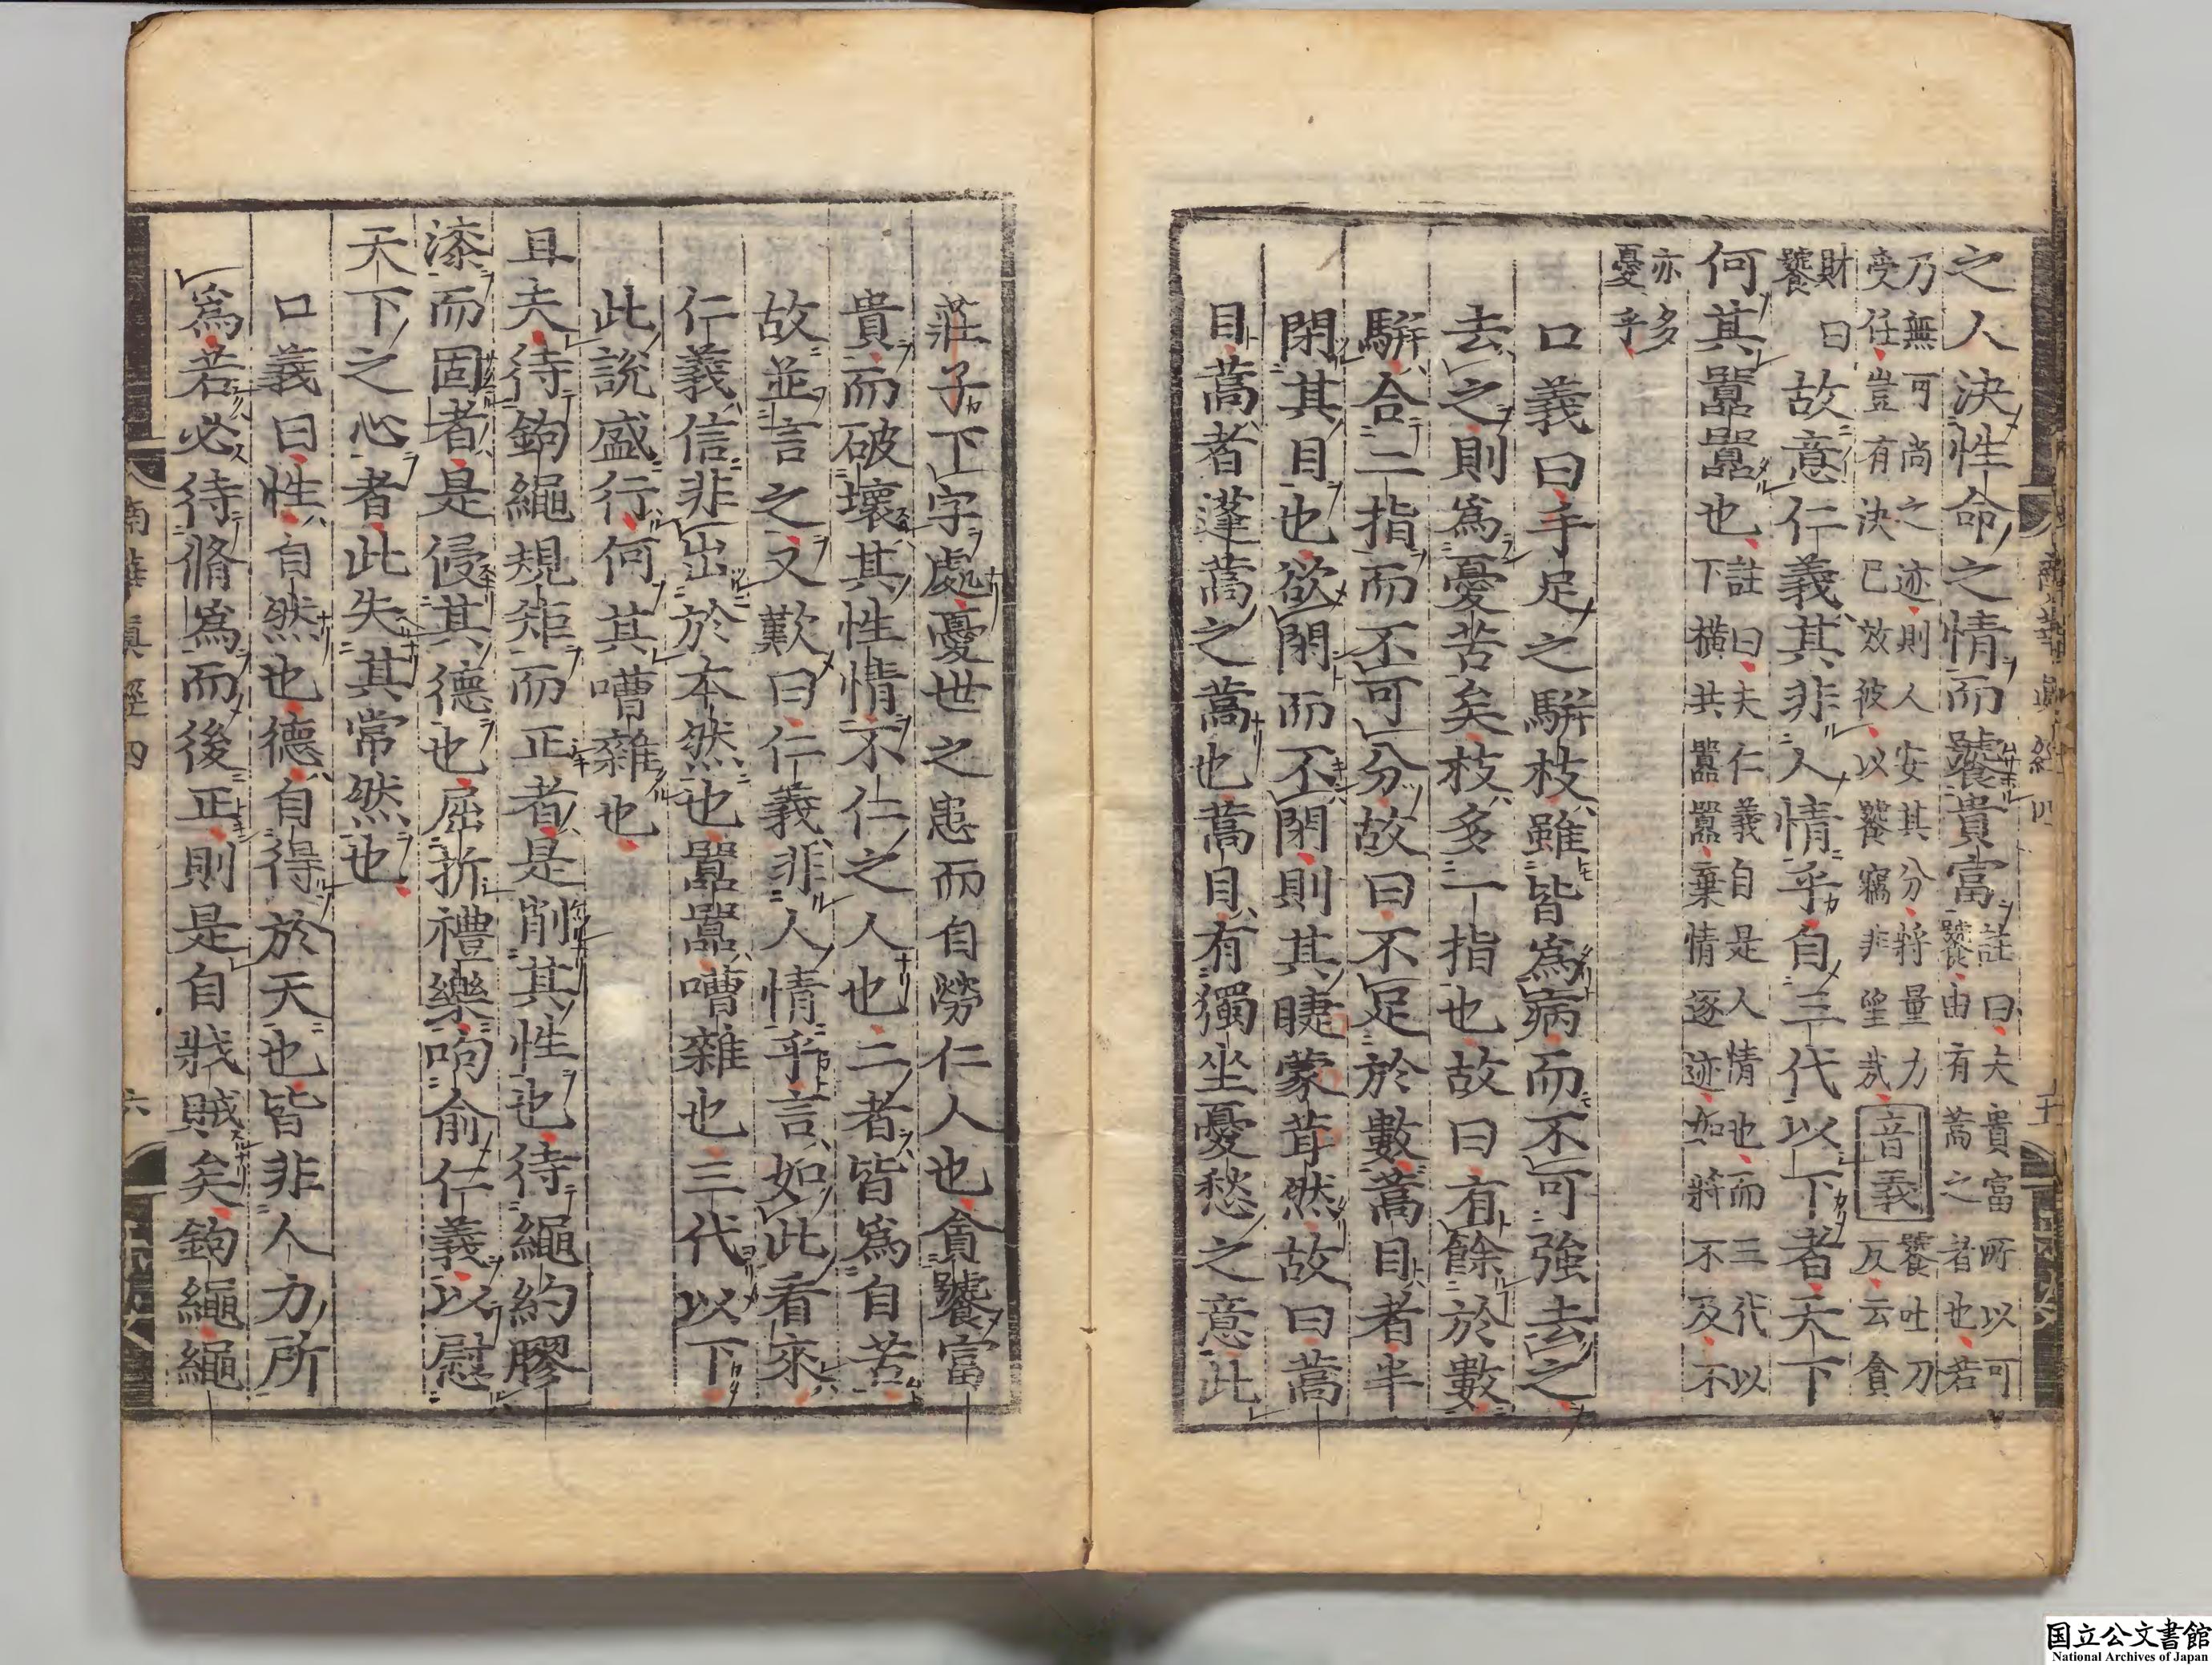 之人決性命之情而饕貴富註曰夫貴富所以可
饕由有蒿之者也若
乃無可尚之迹則人安其分將量力
旁任豈有決已效彼以饕竊非望哉音義饕吐刀
反云貪
財曰
饕故意仁義其非人情乎自三代以下者天下
何其囂囂也註曰夫仁義自是人情也而三代以
下橫共囂囂棄情逐迹如將不及不
亦多
憂乎
口義曰手足之駢枝雖皆為病而不可強去之
去之則為憂苦矣枝多一指也故曰有餘於數
駢合二指而不可分故曰不足於數蒿目者半
閉其目也欲閉而不閉則其睫蒙茸然故曰蒿
目蒿者蓬蒿之蒿也蒿目有獨坐憂愁之意此
南華真經四
五
莊子下一字處憂世之患而自勞仁人也貪饕富
貴而破壞其性情不仁之人也二者皆為自苦
故並言之又歎曰仁義非人情乎言如此看來
仁義信非出於本然也囂囂嘈雜也三代以下
此說盛行何其嘈雜也
且夫待鉤繩規矩而正者是削其性也待繩約膠
漆而固者是侵其德也屈折禮樂呴俞仁義以慰
天下之心者此失其常然也
口義曰性自然也德自得於天也皆非人力所
為若必待脩為而後正則是自戕賊矣鉤繩繩
南華真經四
六
国立公文書館
National Archives of Japan